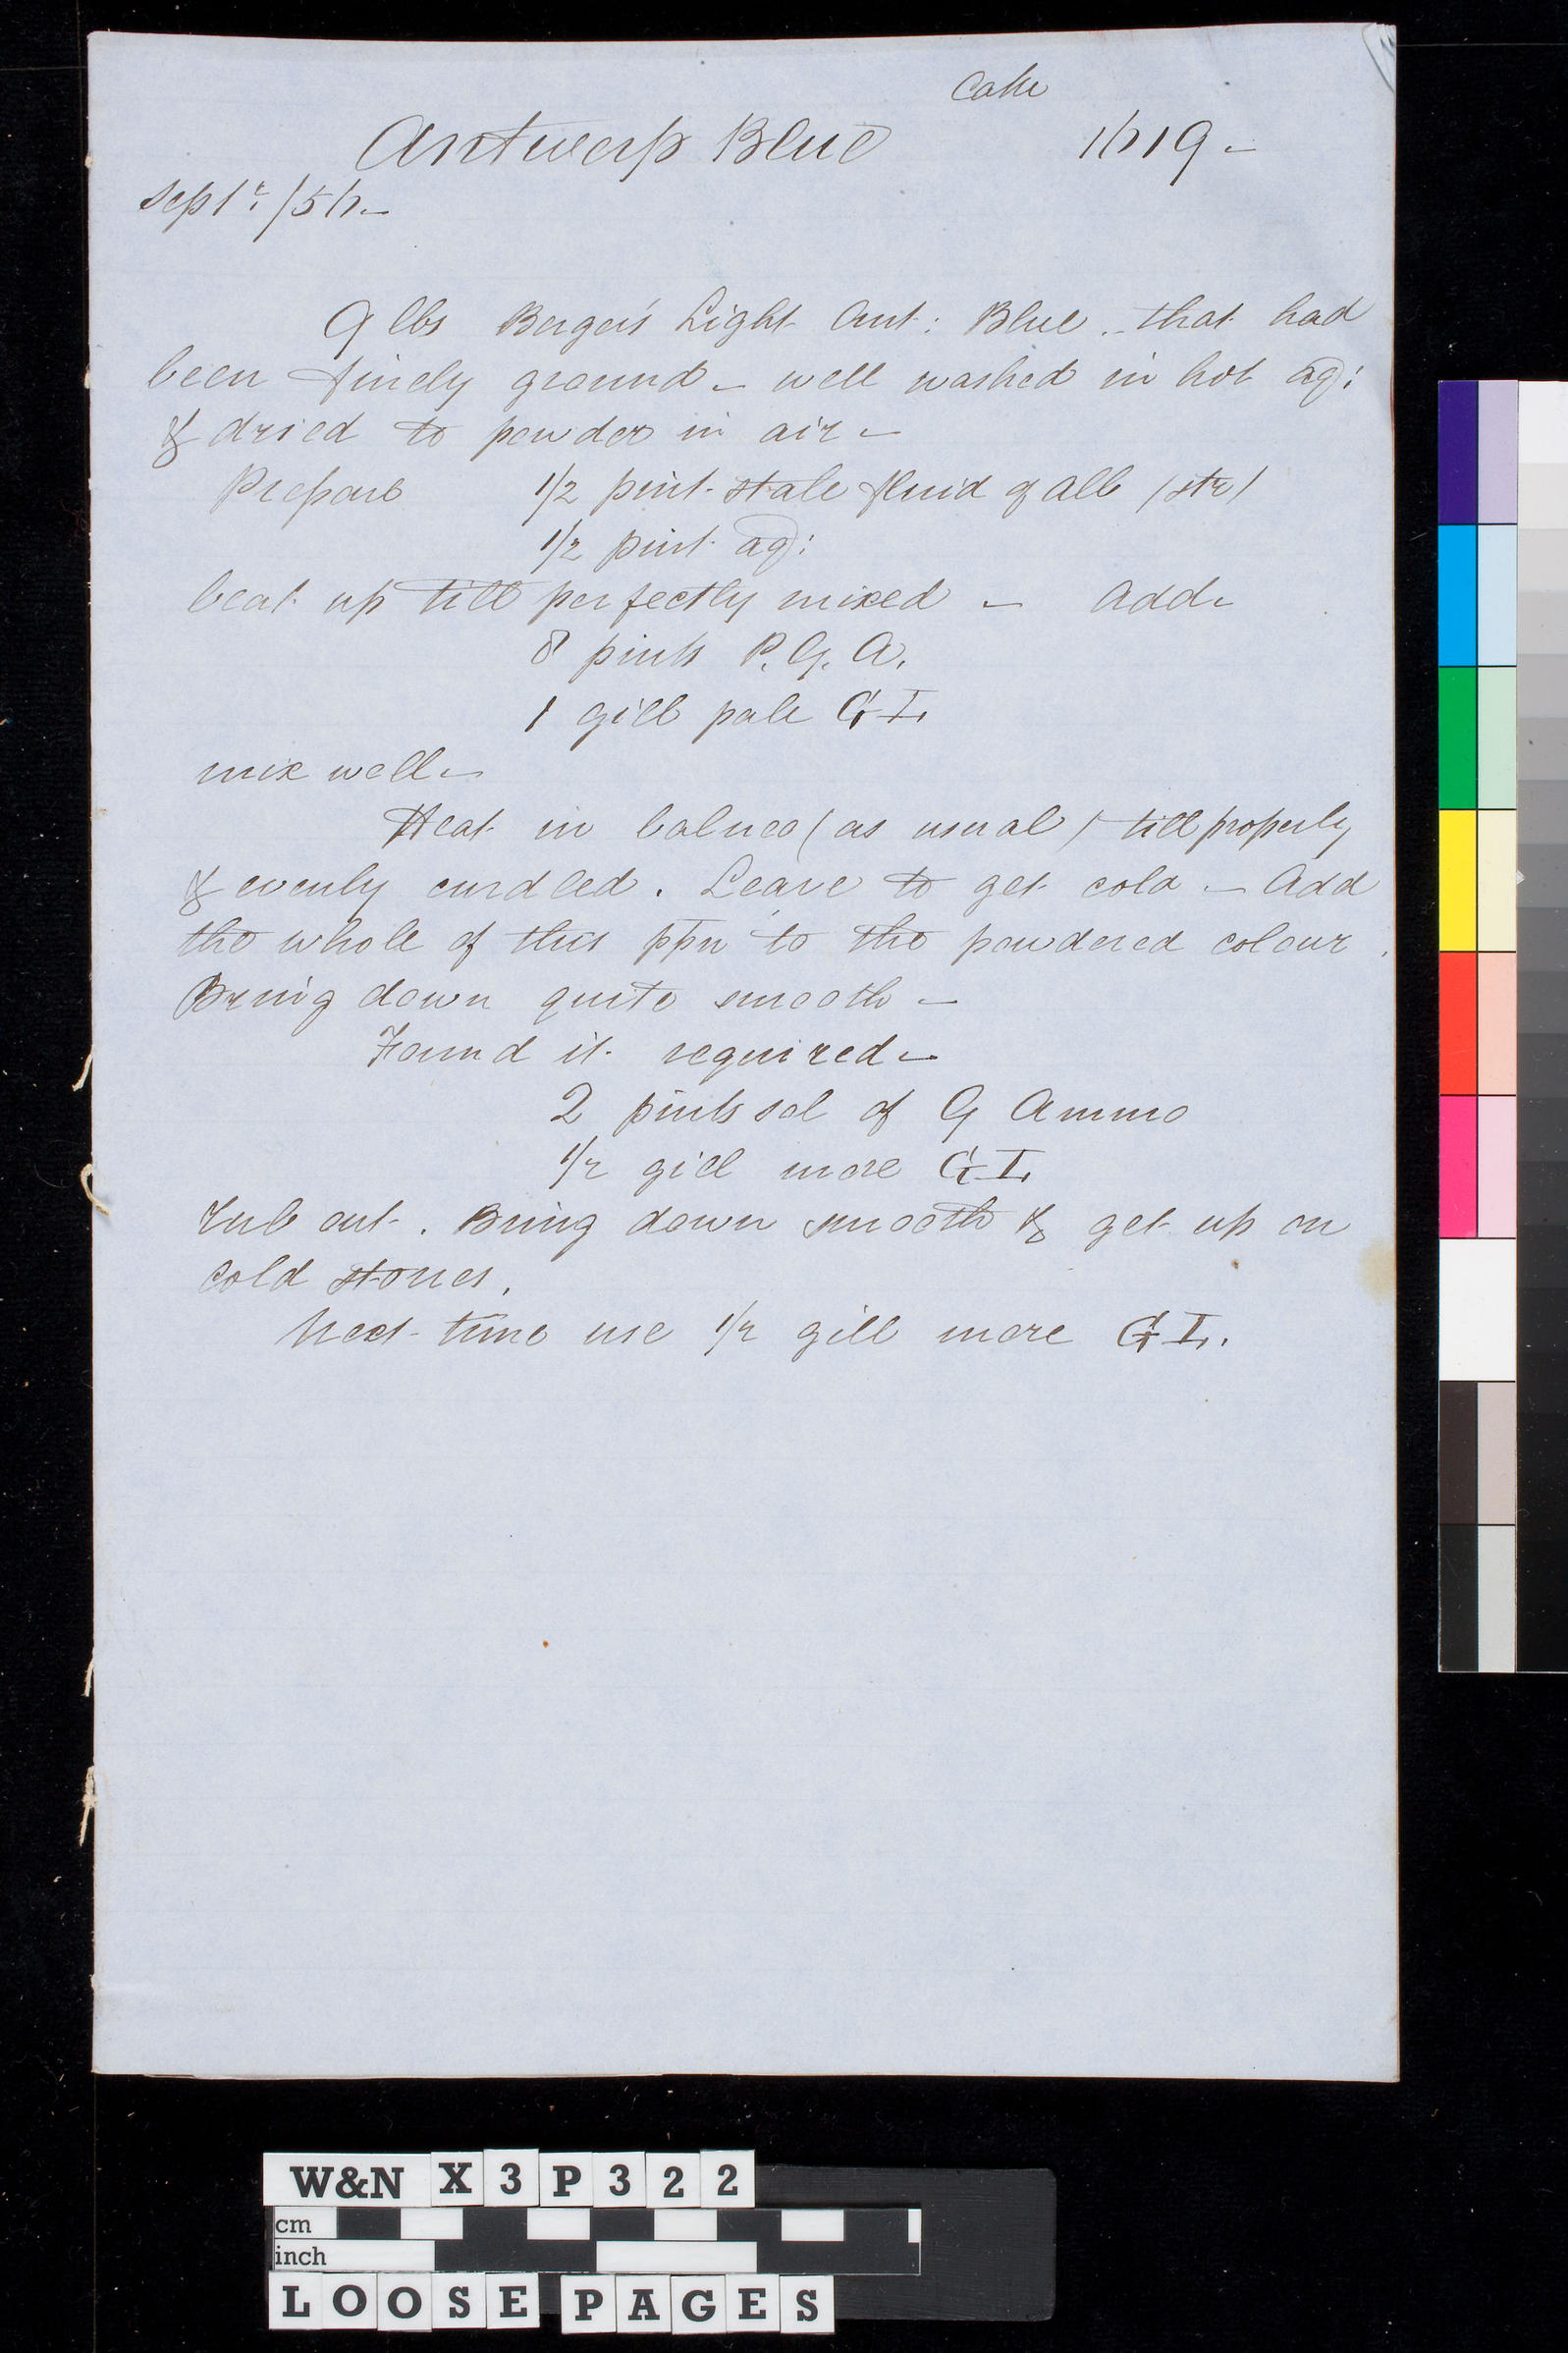 Cake
Antwerp Blue 1/719 -
Septr: /57 -
9 lbs Berger's Light Ant: Blue . that had
been finely ground - well washed in hot aq:
& dried to powder in air -
Prepare 1/2 pint stale fluid gall (str)
1/2 pint aq:
beat up till perfectly mixed - Add -
8 pints P. G. A.
1 gill pale G L
mix well -
Heat in balneo (as usual) till properly
& evenly curdled . Leave to get cold - Add
the whole of this ppn to the powdered colour .
Bring down quite smooth -
Found it required -
2 pints sol of G Ammo
1/2 gill more G L
rub out . Bring down smooth & get up on
cold stones .
Next time use 1/2 gill more G L.
W&N X3P322
cm
inch
LOOSE PAGES